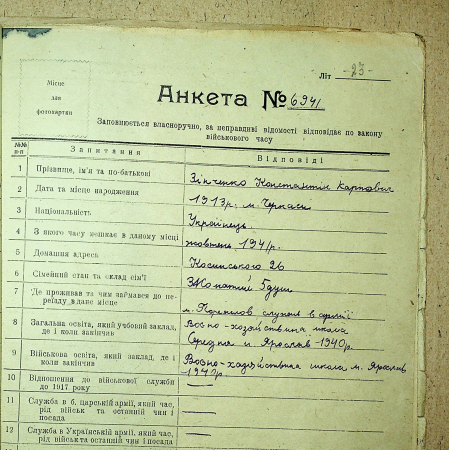 Літ -23-
Місце
для
фотокартки
Анкета № 6941
Заповнюється власноручно, за неправдиві відомості відповідає по закону
військового часу
№№ п-п Запитання Відповіді
1 Прізвище, ім'я та по-батькові Зінченко Константін Карпович
2 Дата та місце народження 1913р. м. Черкаси
3 Національність Українець
4 З якого часу мешкає в даному місці жовтень 1941р.
5 Домашня адреса Косинського 26
6 Сімейний стан та склад сім'ї
7 Де проживав та чим займався до переїзду в дане місце служив в армії
8 Загальна освіта, який учбовий заклад, де і коли закінчив школа
Середня м. Ярослав 1940р
9 Військова освіта, який заклад, де і коли закінчив школа м. Ярослав
1940р.
10 Відношення до військової служби до 1917 року —
11 Служба в б. царській армії, який час, рід військ та останній чин і посада —
12 Служба в Українській армії, який час, рід військ та останній чин і посада —